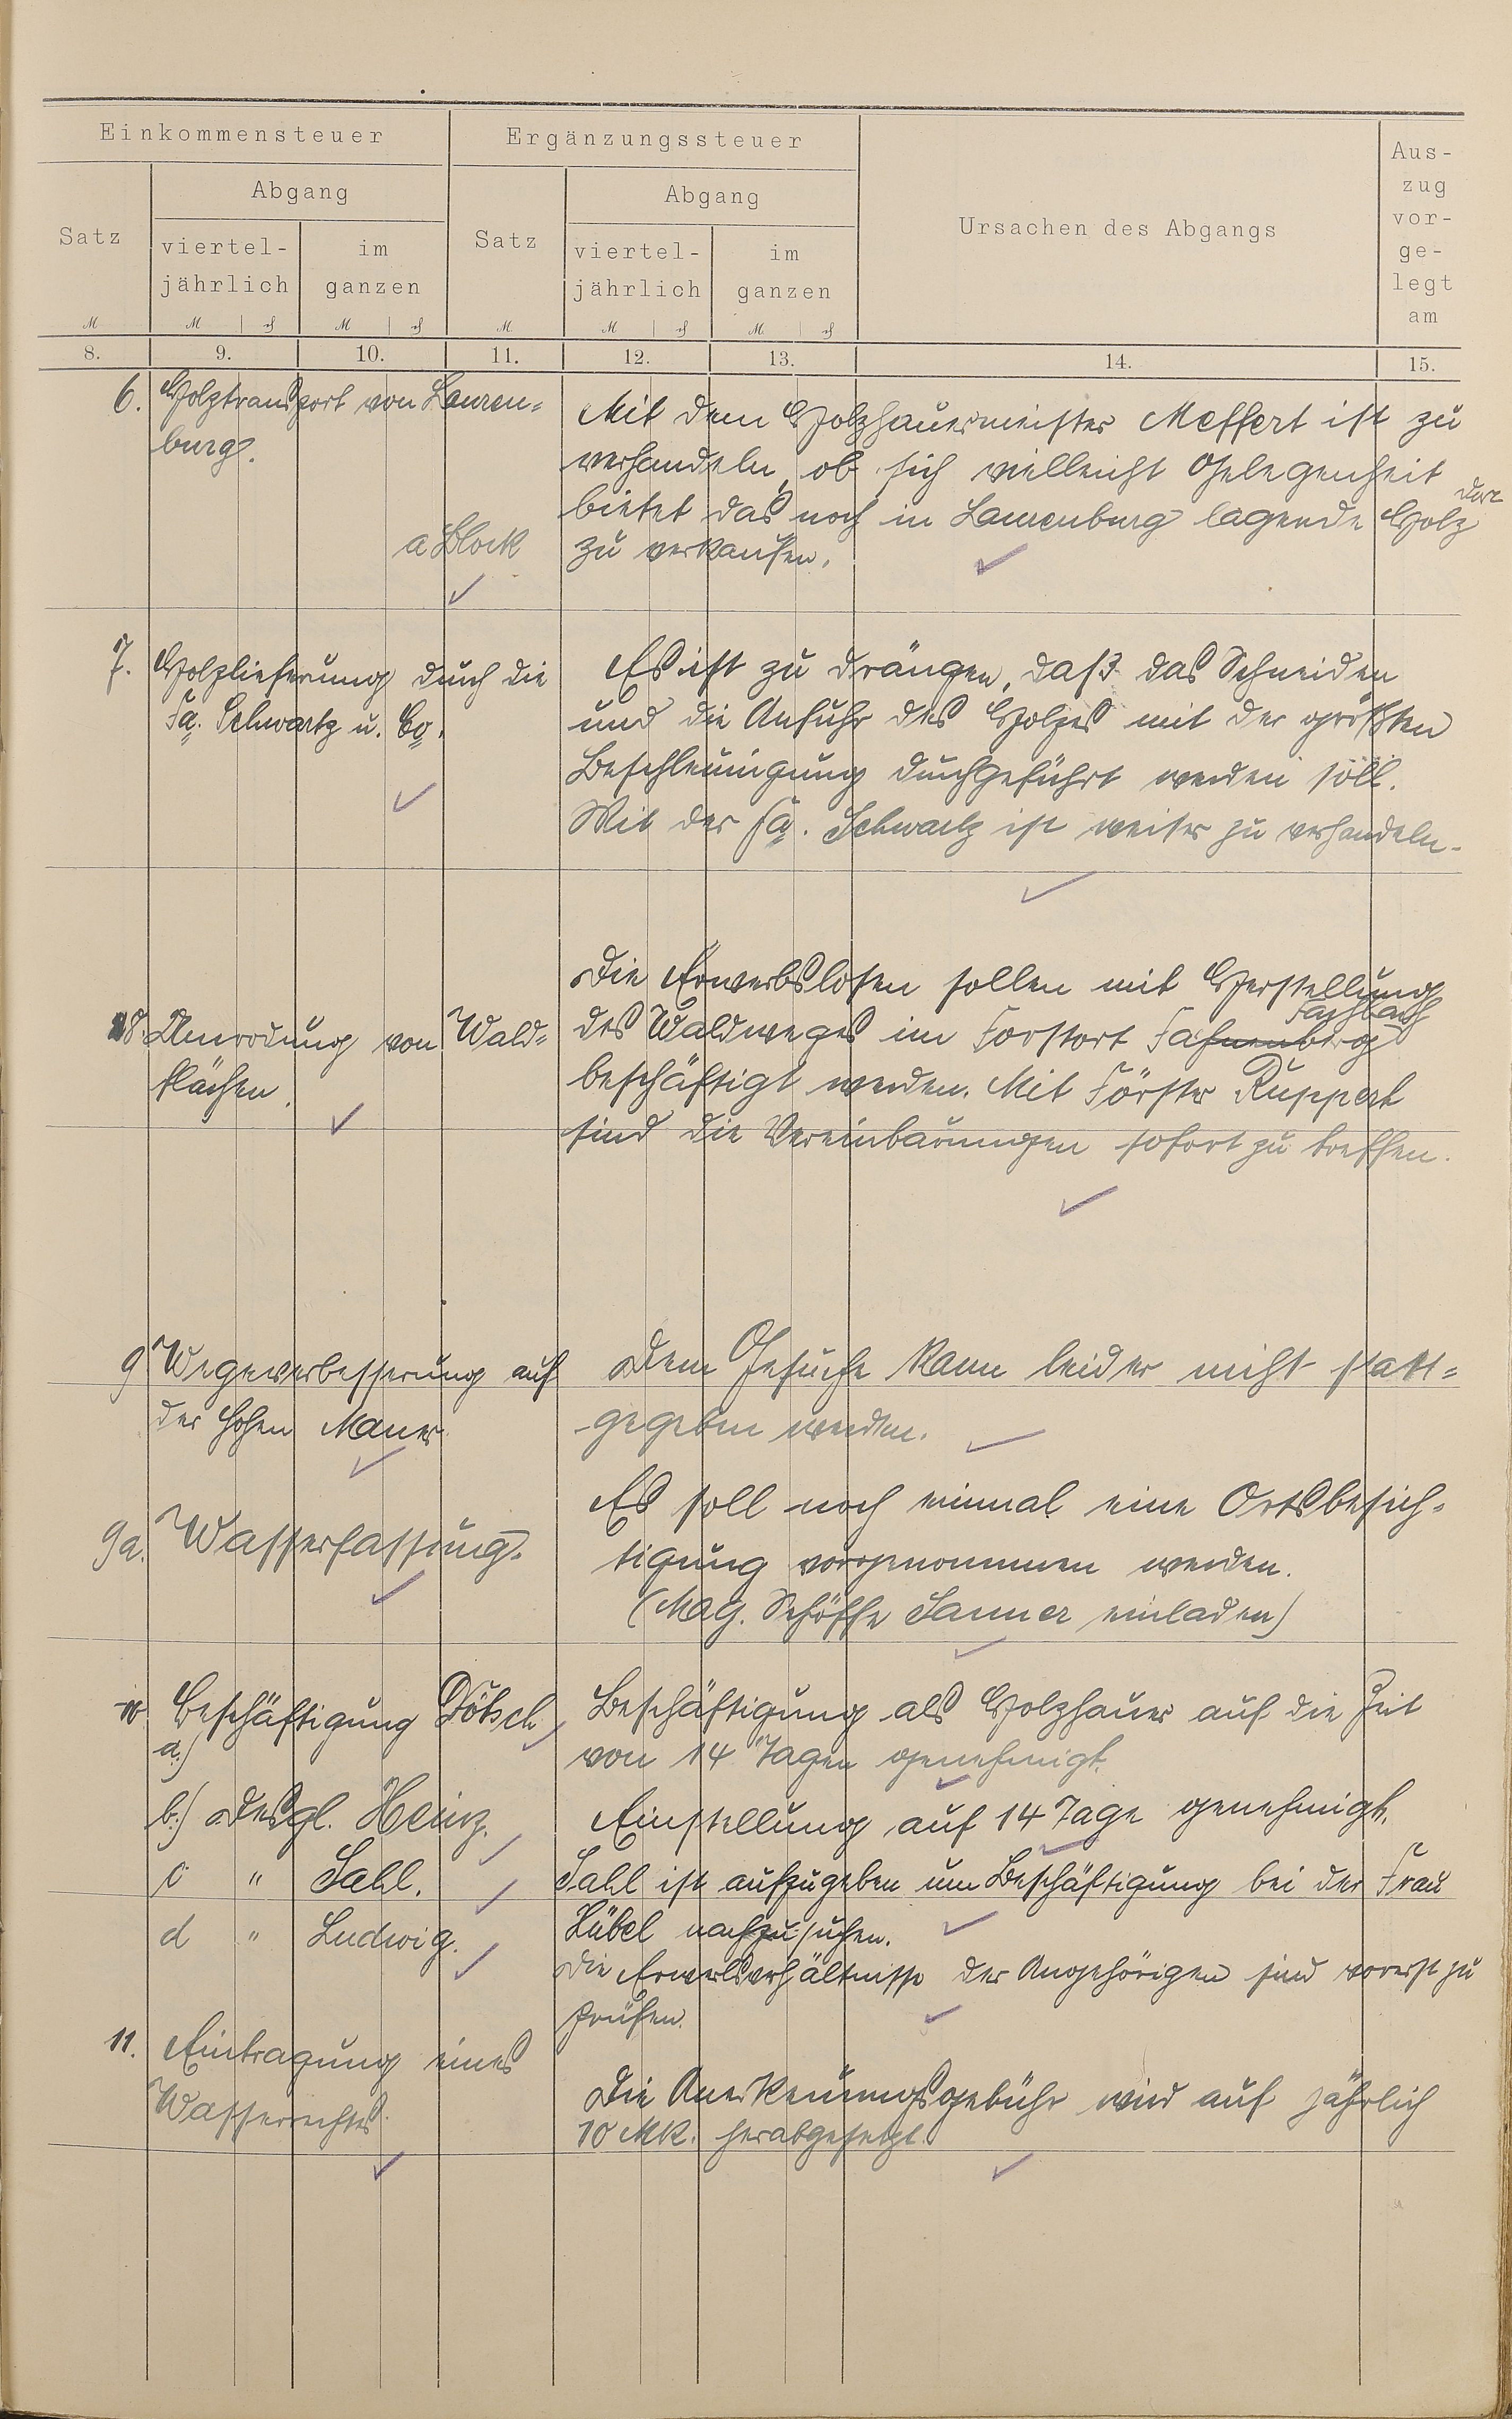 Einkommensteuer
Ergänzungssteuer
Ursachen des Abgangs
Aus-
zug
vor-
ge-
legt
am
Satz
Abgang
viertel-
jährlich
im
ganzen
Satz
Abgang
viertel-
jährlich
im
ganzen
M
M
M
M
M
M
8.
9.
10.
11.
12.
13.
14.
15.
6. Holztransport von Lauren=
burg.
a Block
Mit dem Holzhauermeister Meffert ist zu
verhandeln, ob sich vielleicht Gelegenheit
bietet das noch in Laurenburg lagende Holz dort
zu verkaufen.
7. Holzlieferung durch die
Fa. Schwartz u. Co.
Es ist zu drängen, daß das Schneiden
und die Anfuhr des Holzes mit der größten
Beschleunigung durchgeführt werden soll.
Mit der Fa. Schwartz ist weiter zu verhandeln.
8. von Wald=
flächen.
Die Erwerbslosen sollen mit Herstellung
des Waldweges im Forstort Fahnenberg Fachbach
beschäftigt werden. Mit Förster Ruppert
sind die Vereinbarungen sofort zu treffen.
9 Wegeverbesserung auf
der hohen Mauer
Dem Gesuche kann leider nicht statt=
gegeben werden.
9a. Wasserfassung.
Es soll noch einmal eine Ortsbesich=
tigung vorgenommen werden.
(Mag. Schöffe Sanner einladen)
10 Beschäftigung Dötsch
a.)
Beschäftigung als Holzhauer auf die Zeit
von 14 Tagen genehmigt.
b.) Desgl. Heinz.
Einstellung auf 14 Tage genehmigt.
c " Sahl.
Sahl ist aufzugeben um Beschäftigung bei der Frau
Hübel nachzusuchen.
d " Ludwig.
Die Erwerbsverhältnisse der Angehörigen sind vorerst zu
prüfen.
11. Eintragung eines
Wasserrechtes.
Die Anerkennungsgebühr wird auf jährlich
10 Mk. herabgesetzt.